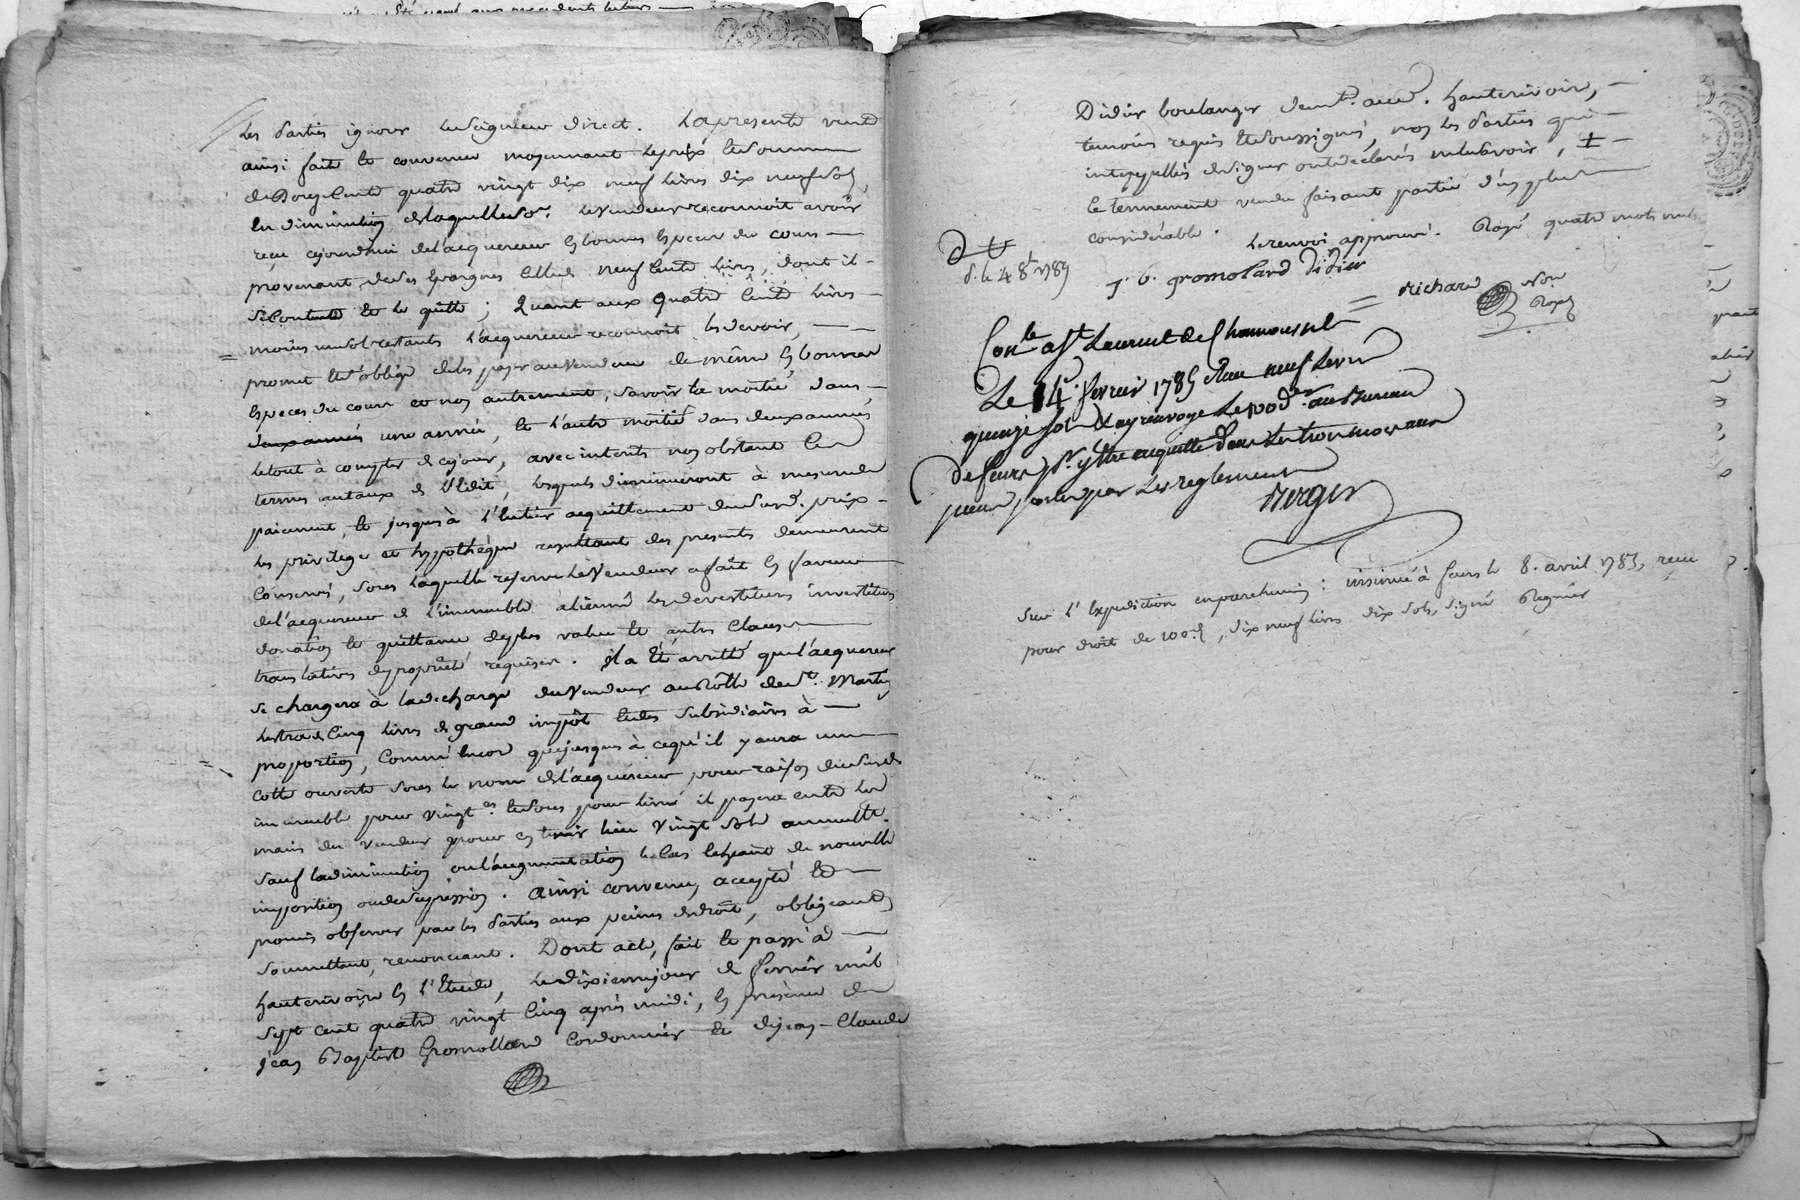 Les parties ignorer le seigneur direct. La presente vente
ainsi faite et convenue moyennant le prix et somme
de Douze cents quatre vingt dix neuf livres dix neuf sols,
En diminution de laquelle so.e le vendeur reconnoit avoir
reçu cejourdhui de l'acquereur En bonnes Especes du cours
provenant de ses Epargnes Celle de neuf cents livres, dont il
Se Contente et le quitte; Quant aux quatre Cents livres
moins un sol restants l'acquereur reconnoit les devoir,
promet et s'oblige de les payer au vendeur de même En bonnes
Especes du cours et non autrement, savoir la moitié dans
une année, et l'autre moitié dans deux années
le tout à compter de cejour, avec interets non obstant les
termes au taux de l'Edit, lesquels diminueront à mesure de
paiement, et jusques à l'Entier acquittement du susd. prix
les privileges et hypothéques resultant des presentes demeurent
Conservés, sous laquelle reserve le vendeur a fait En faveur
de l'acquereur de l'immeuble aliené les devestitures investitures
donation et quittance de plus value et autres Clauses
translatives de proprieté requises. Il a Eté arrêté que l'acquereur
se chargera à la decharge du vendeur au Rolle de St. Martin
Lestra de Cinq livres de grand impôt et des subsidiaires à
proportion, Comme Encore que jusques à ce qu'il y aura une
Cotte ouverte sous le nom de l'acquereur pour raison du susd.
immeuble pour vingt.es et sous pour livre il payera entre les
mains du vendeur pour En tenir lieu vingt sols annuellt.
sauf la diminution ou l'augmentation le Cas Echeant de nouvelle
imposition ou de supression. Ainsi convenu, accepté et
promis observer par les parties aux peines de droit, obligeant
soumettant, renonciant. Dont acte, fait et passé à
hauterivoire En l'Etude, le dixieme jour de fevrier mil
sept cent quatre vingt Cinq après midi, En presence de
jean Baptiste Gromollard Cordonnier et de jean-Claude
Didier boulanger demt. aud. hauterivoire,
temoins requis et soussignés, non les parties qui
interpellés de signer ont declarés ne le savoir,
le tennement vendu faisant partie d'un plus
considérable. Le renvoi approuvé. Rayé quatre mots nuls
d. le 4 8b 1789
J. B. gromolard Didier
richard No.re Royal
Con.lé à St Laurent de Chamousset
Le 14.e fevrier 1785 Reçu neuf livres
quinze sols et ay renvoyé le 100.e denier au Bureau
de feurs pr. y Etre acquitté dans les trois mois aux
peines portées par les reglements
Berger
Sur l'Expedition en parchemin: insinué à feurs le 8. avril 1785, reçu
pour droit de 100.e, dix neuf livres dix sols, signé Regnier